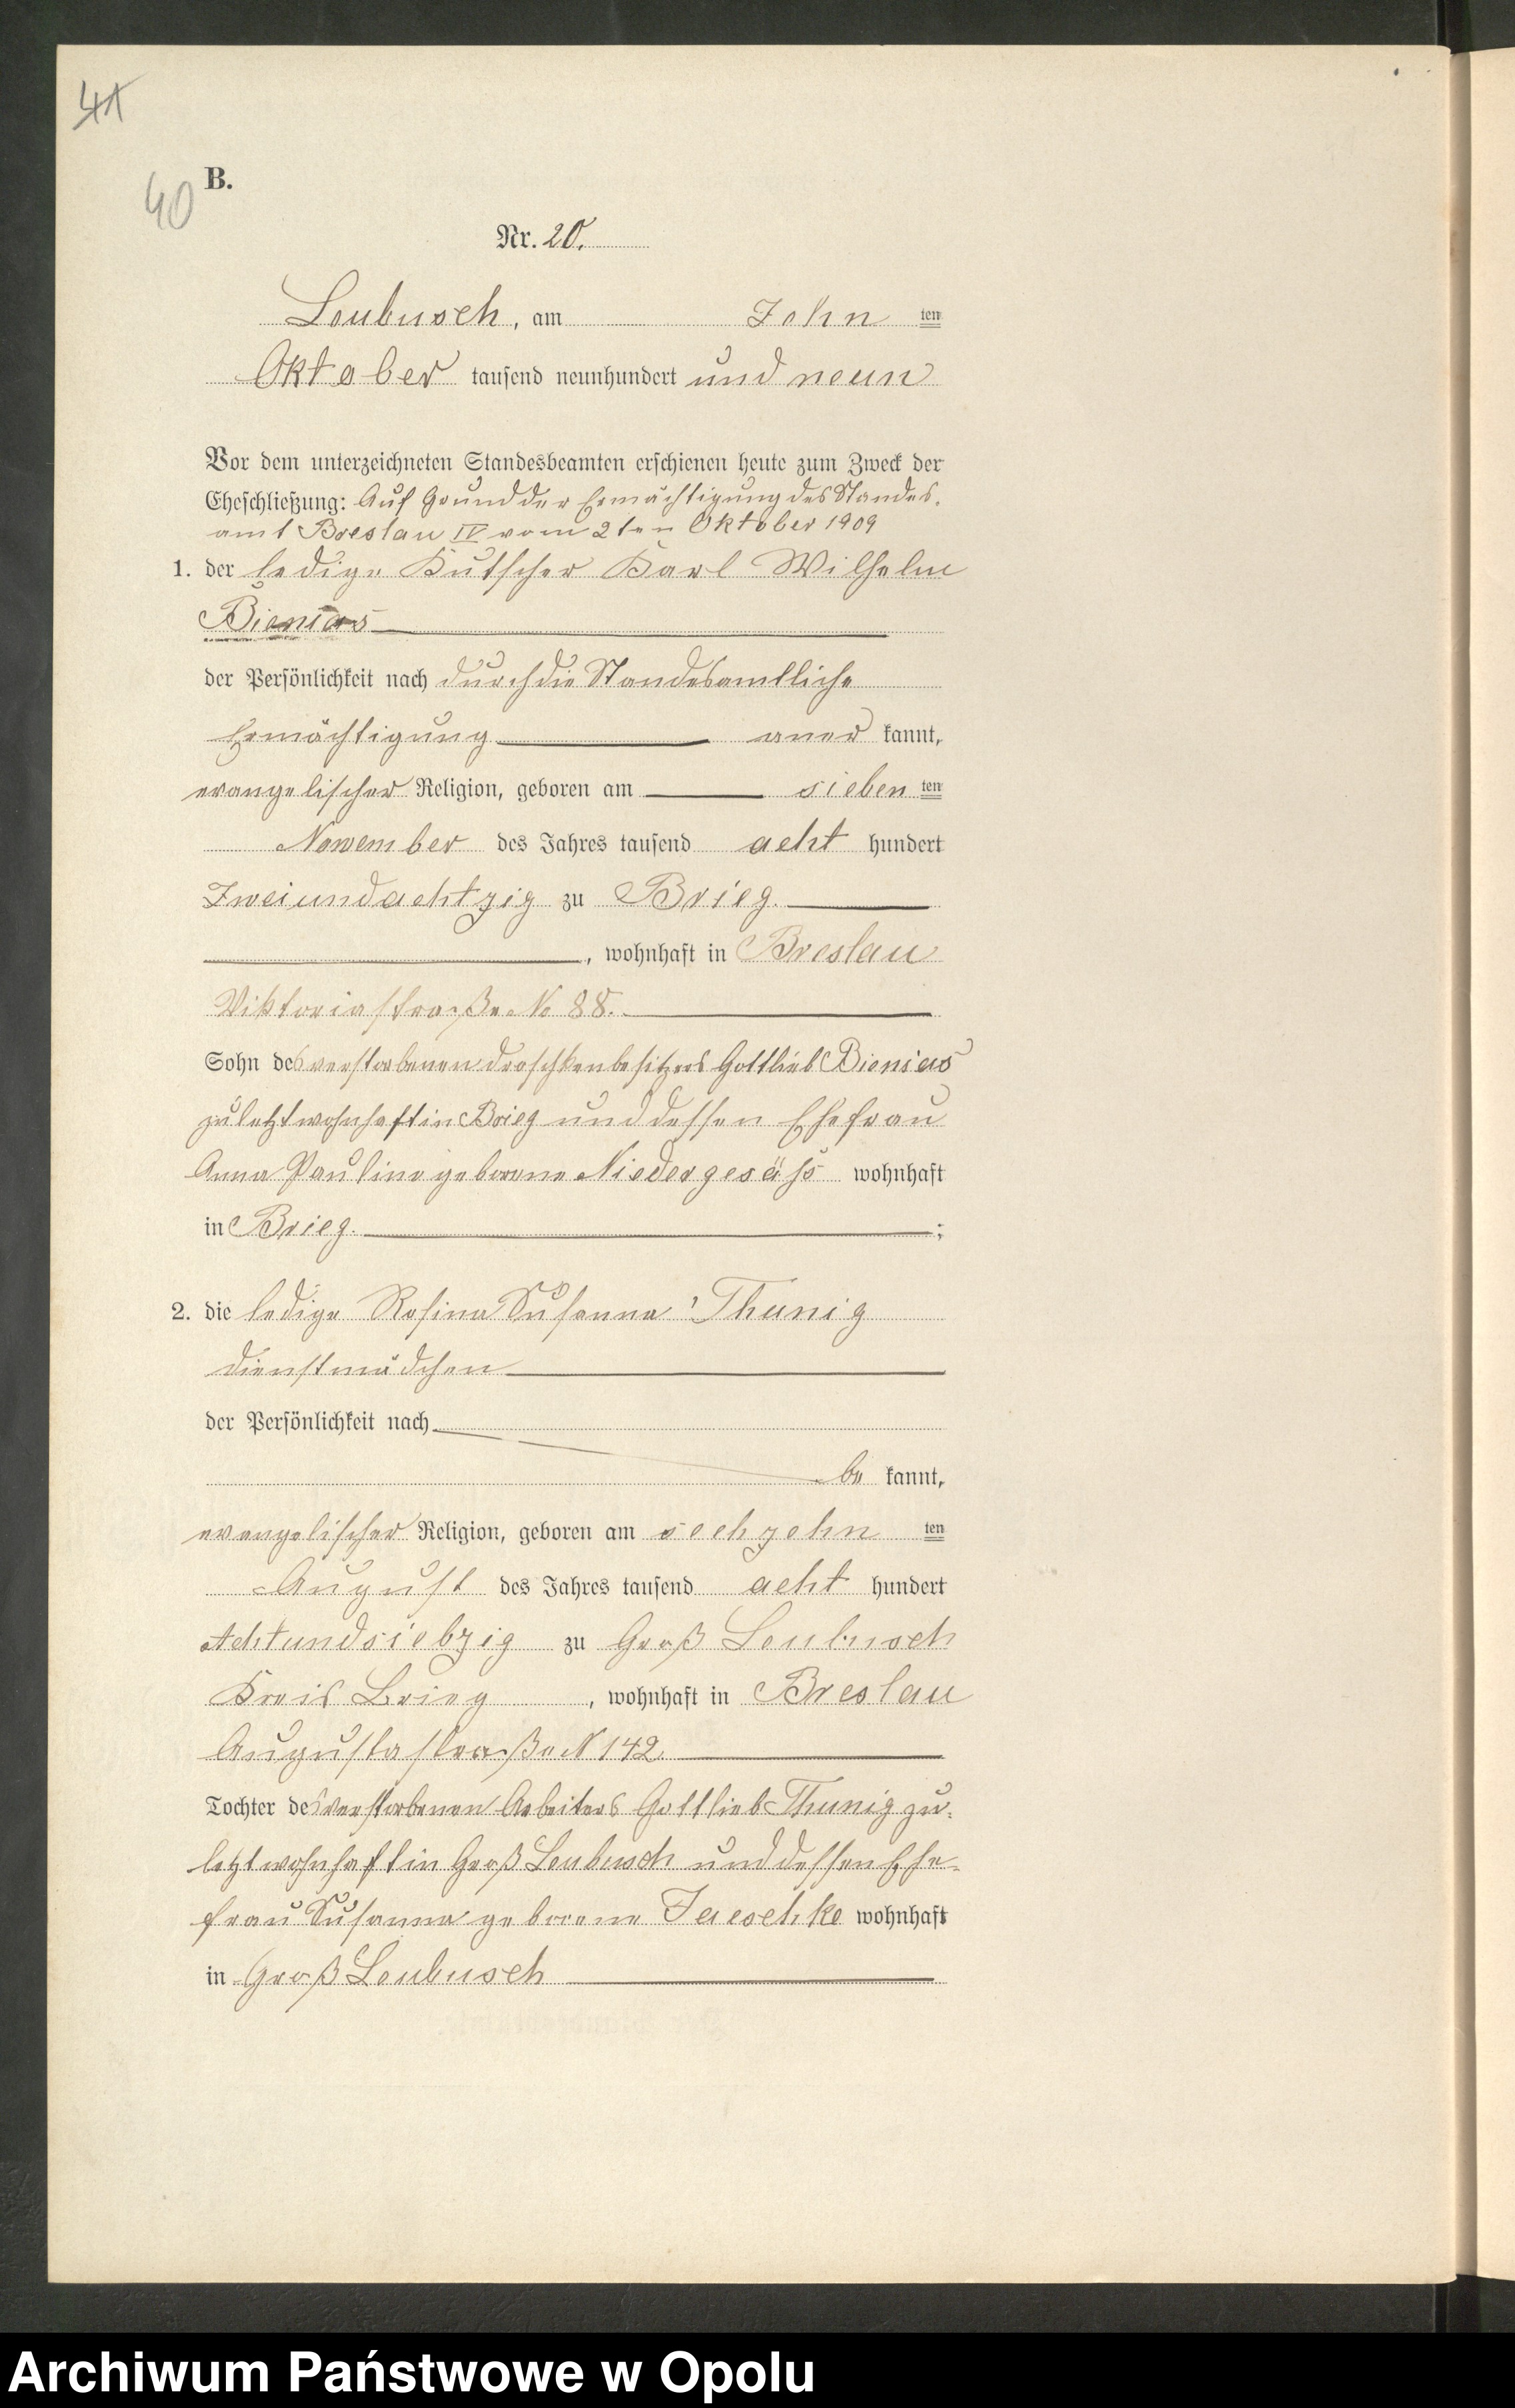 41
40 B.
Nr. 20.
Leubusch, am Zehn ten
Oktober tausend neunhundert und neun
Vor dem unterzeichneten Standesbeamten erschienen heute zum Zweck der
Eheschließung: Auf Grund der Ermächtigung des Standes-
amt Breslau IV vom 2ten Oktober 1909
1. der ledige Kutscher Karl Wilhelm
Bienias
der Persönlichkeit nach durch die Standesamtliche
Ermächtigung aner kannt,
evangelischer Religion, geboren am sieben ten
November des Jahres tausend acht hundert
Zweiundachtzig zu Brieg.
, wohnhaft in Breslau
Viktoriastraße No 88.
Sohn des verstorbenen Droschkenbesitzers Gottlieb Bienias
zuletzt wohnhaft in Brieg und dessen Ehefrau
Anna Pauline geborene Niedergesäß wohnhaft
in Brieg. ;
2. die ledige Rosina Susanna Thunig
Dienstmädchen
der Persönlichkeit nach
be kannt,
evangelischer Religion, geboren am sechzehn ten
August des Jahres tausend acht hundert
Achtundsiebzig zu Groß Leubusch
Kreis Brieg , wohnhaft in Breslau
Augustastraße N 142.
Tochter des verstorbenen Arbeiters Gottlieb Thunig zu-
letzt wohnhaft in Groß Leubusch und dessen Ehe-
frau Susanna geborene Jaeschke wohnhaft
in Groß Leubusch
Archiwum Państwowe w Opolu